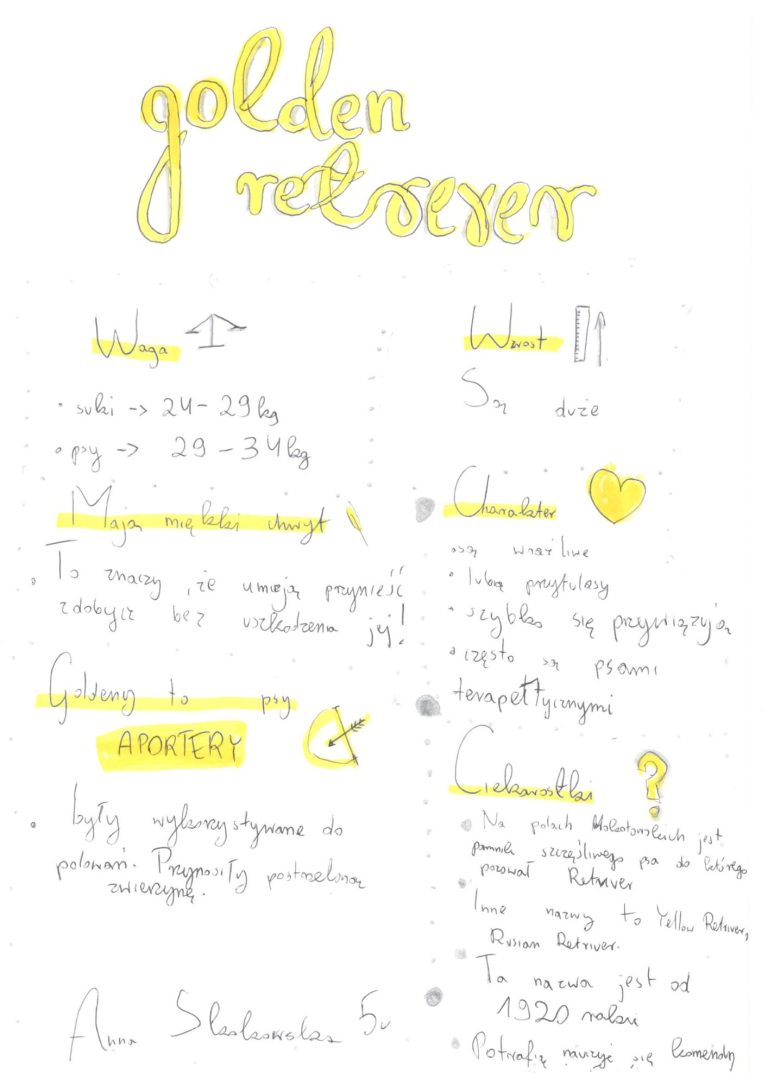 golden
retrever
Waga
• suki -> 24-29kg
• psy -> 29-34kg
Mają miękki chwyt
• To znaczy, że umieją przynieść
zdobycz bez uszkodzenia jej!
Goldeny to psy
APORTERY
• były wykorzystywane do
polowań. Przynosiły postrzeloną
zwierzynę.
Anna Skakowska 5
Wzrost
Są duże
Charakter
• są wrażliwe
• lubią przytulasy
• szybko się przywiązują
• często są psami
terapettycznymi
Ciekawostki
• Na polach jest
pomnik szczęśliwego psa do którego
pozował Retriver
• Inne nazwy to Yellow Retriver,
Rusian Retriver.
• Ta nazwa jest od
1920 roku
• Potrafią nauczyć się komendy